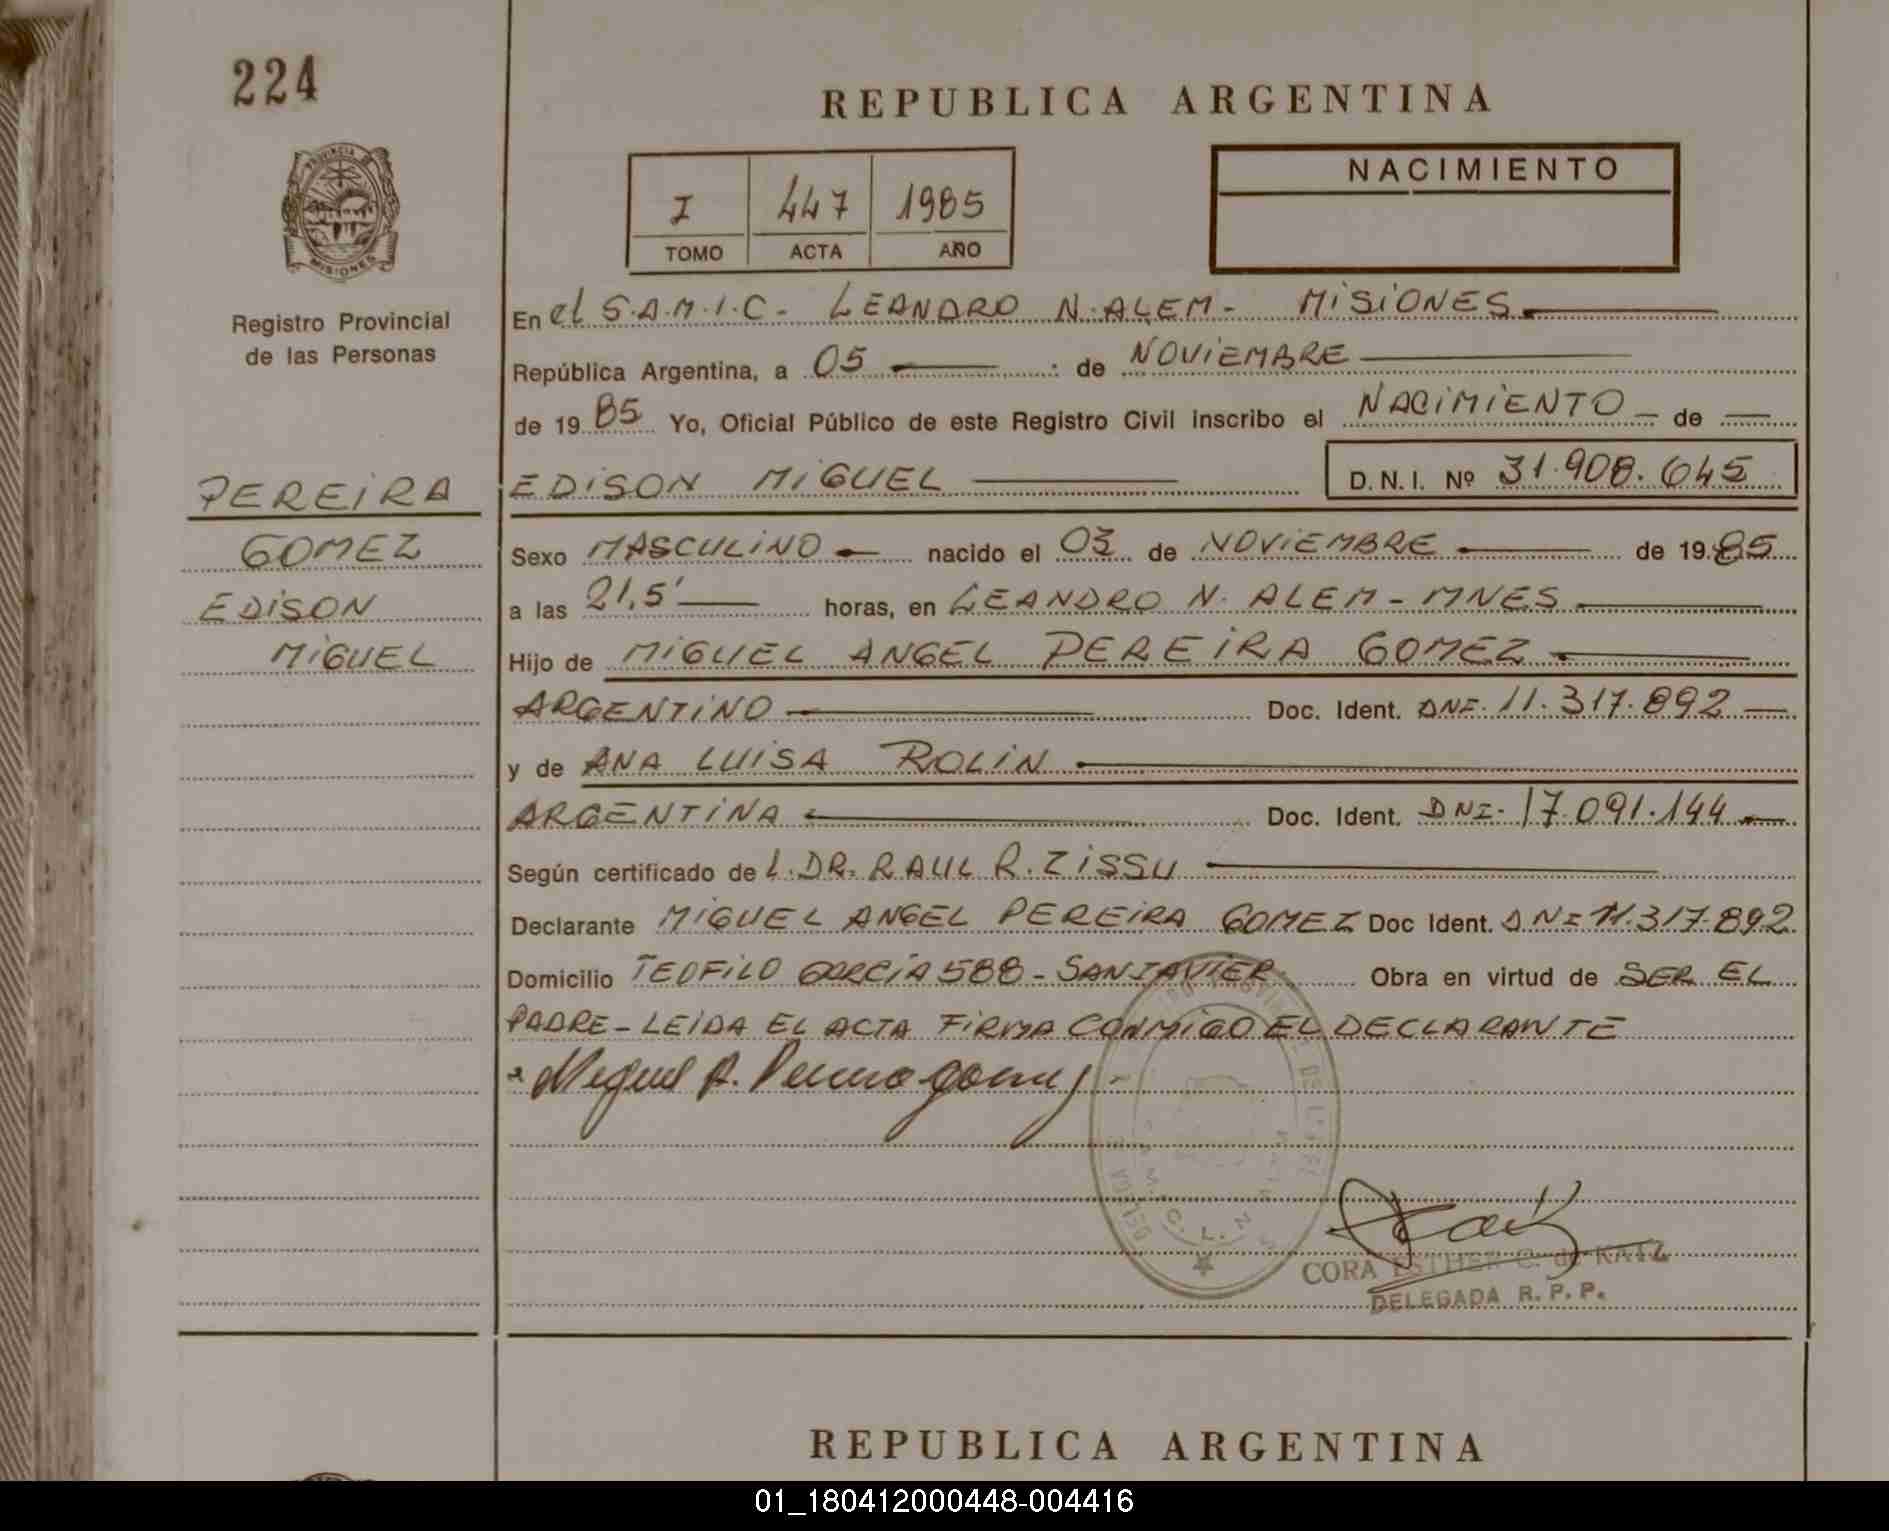 224
REPUBLICA ARGENTINA
PROVINCIA DE
MISIONES
Registro Provincial
de las Personas
I 447 1985
TOMO ACTA AÑO
NACIMIENTO
En el S.A.M.I.C. - LEANDRO N. ALEM - MISIONES
República Argentina, a 05 de NOVIEMBRE
de 1985 Yo, Oficial Público de este Registro Civil inscribo el NACIMIENTO de
PEREIRA
GOMEZ
EDISON
MIGUEL
EDISON MIGUEL D.N.I. Nº 31.908.645
Sexo MASCULINO nacido el 03 de NOVIEMBRE de 1985
a las 21,5' horas, en LEANDRO N. ALEM - MNES
Hijo de MIGUEL ANGEL PEREIRA GOMEZ
ARGENTINO Doc. Ident. DNI. 11.317.892
y de ANA LUISA ROLIN
ARGENTINA Doc. Ident. DNI. 17.091.144
Según certificado de L. DR. RAUL R. ZISSU
Declarante MIGUEL ANGEL PEREIRA GOMEZ Doc Ident. DNI 11.317.892
Domicilio TEOFILO GARCIA 588 - SAN JAVIER. Obra en virtud de SER EL
PADRE - LEIDA EL ACTA FIRMA CONMIGO EL DECLARANTE
Miguel A. Pereira Gomez
CORA ESTHER C. de KATZ
DELEGADA R. P. P.
REPUBLICA ARGENTINA
01_180412000448-004416